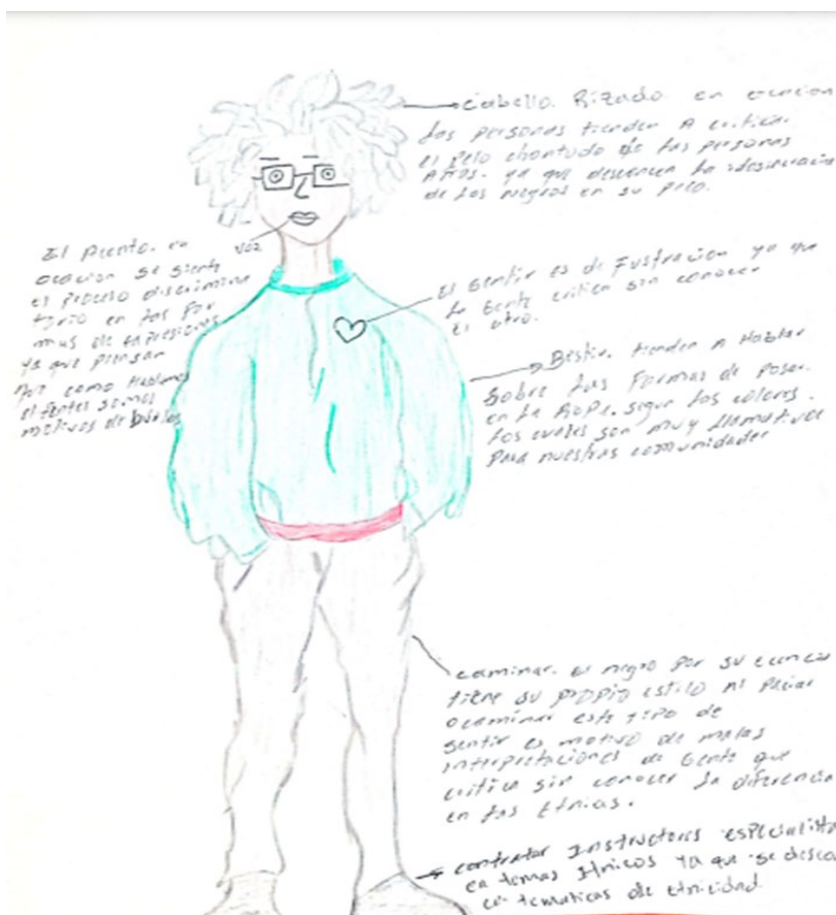 cabello. Rizado. en ocacion
las personas tienden A critica.
el pelo chontudo de las personas
Afros. ya que desconcen la idealizacion
de los negros en su pelo.
El Acento. en
ocacion se siente
el proceso discrimina
torio en las for
mas de expresiones
ya que piensan
Por como Hablamos
diferentes somos
motivos de burlas
voz
El sentir es de Fustracion ya que
la Gente critica sin conocer
el otro.
Bestir. tienden A Hablar
Sobre las Formas de Posar.
en la RoPa. segun los colores.
los cuales son muy llamativos
para nuestras comunidades
caminar. el negro por su
tiene su propio estilo al
ocaminar este tipo de
sentir es motivo de malas
interpretaciones de Gente que
critica sin conocer la diferencia
en las Etnicas.
contratar Instructores especialista
en temas Etnicos ya que se desco
ce tematicas de etnicidad